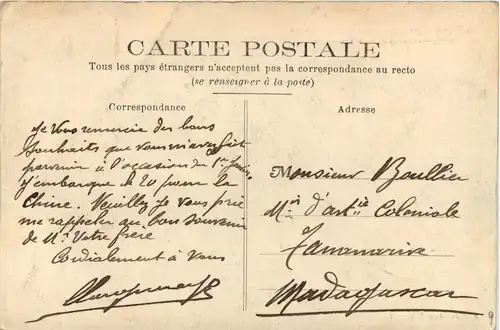 CARTE POSTALE
Tous les pays étrangers n'acceptent pas la correspondance au recto
(se renseigner à la poste)
Correspondance
Je vous remercie des bons
souhaits que vous m'avez fait
parvenir à l'occasion du 1er Janv.
J'embarque le 20 pour la
Chine. Veuillez je vous prie
me rappeler au bon souvenir
de Mr votre frère
Cordialement à vous
Adresse
Monsieur Boullier
Min d'artie Coloniale
Tananarive
Madagascar